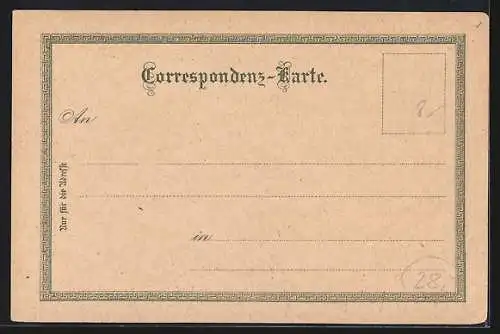 Correspondenz-Karte.
An
Nur für die Adresse
in
28